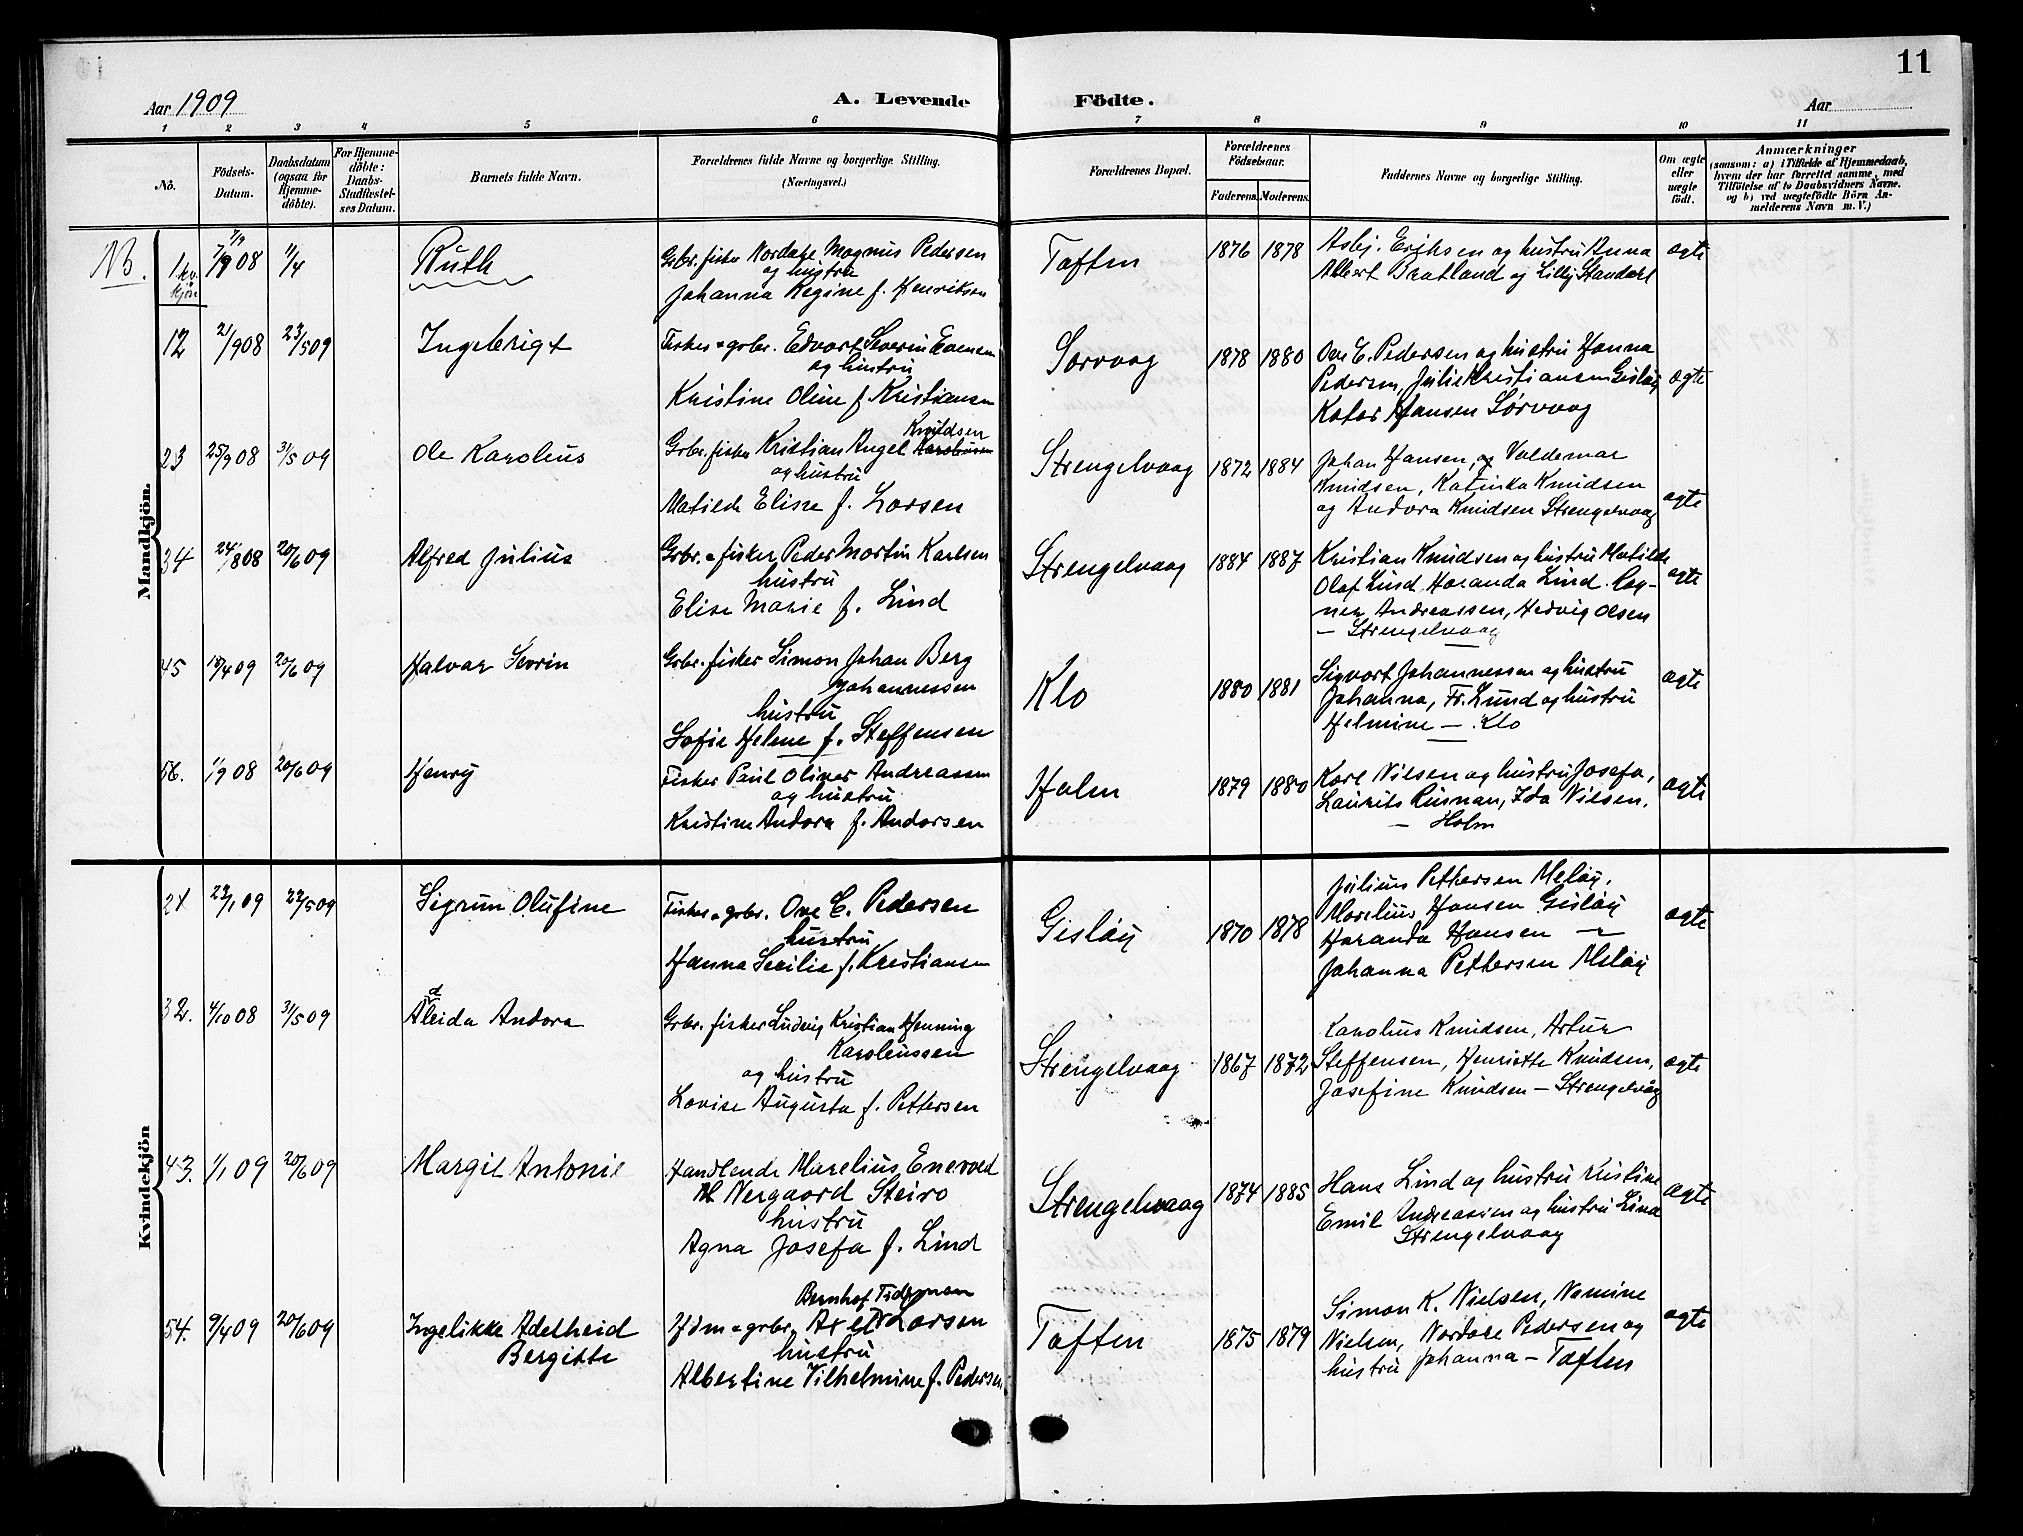 11
Aar 1909
A. Levende
Födte.
Aar
1 2 3 4 5 6 7 8 9 10 11
No.
Födsels-
Datum.
Daabsdatum
(ogsaa for
Hjemme-
döbte).
For Hjemme-
döbte:
Daabs-
Stadfæstel-
ses Datum.
Barnets fulde Navn.
Forældrenes fulde Navne og borgerlige Stilling.
(Næringsvei.)
Forældrenes Bopæl.
Forældrenes
Födselsaar.
Faderens. Moderens.
Faddernes Navne og borgerlige Stilling.
Om ægte
eller
uægte
födt.
Anmærkninger
(saasom: a) i Tilfælde af Hjemmedaab,
hvem der har forrettet samme, med
Tilföielse af to Daabsvidners Navne.
og b) ved uægtefödte Börn An-
melderens Navn m. V.)
Mandkjön.
NB. 1 kv. kjön 7/9 08 1/4 Ruth
Gbr. fisker Nordahl Magnus Pedersen
og hustru
Johanna Regine f. Henriksen
Toften 1876 1878
Asbj. Eriksen og hustru Anna
Albert Bratland og Lilly Standahl
ægte
12 2/9 08 23/5 09 Ingebrigt
Fisker & grbr. Edvart Severin Evensen
og hustru
Kristine Oline f. Kristiansen
Sørvaag 1878 1880
Ove C. Pedersen og hustru Hanna
Pedersen, Julie Kristiansen Gisløy
Hansen Sørvaag
ægte
23 25/9 08 31/5 09 Ole Karolius
Knudsen
Grbr. fisker Kristian Angel
og hustru
Matilde Elise f. Larsen
Strengelvaag 1872 1884
Johan Hansen, og Valdemar
Knudsen, Katinka Knudsen
og Andora Knudsen Strengelvaag
ægte
34 24/8 08 20/6 09 Alfred Julius
Grbr. & fisker Peder Martin Karlsen
hustru
Elise Marie f. Lind
Strengelvaag 1884 1887
Kristian Knudsen og hustru Matilde
Olaf Lind Haranda Lind. Rag-
ner Andreassen, Hedvig Olsen
— Strengelvaag
ægte
45 18/4 09 20/6 09 Halvar Sevrin
Grbr. fisker Simon Johan Berg
Johannessen
hustru
Sofie Helene f. Steffensen
Klo 1880 1881
Sigvart Johannessen og hustru
Johanna, Fr. Lund og hustru
Helmine — Klo
ægte
56. 1/9 08 20/6 09 Henry
Fisker Paul Oliver Andreassen
og hustru
Kristine Andora f. Andorsen
Holm 1879 1880
Karl Nilsen og hustru Josefa,
Laurits Rusnan, Ida Nilsen.
— Holm
ægte
Kvindekjön
21 23/1 09 23/5 09 Sigrun Olufine
Fisker & grbr. Ove C. Pedersen
hustru
Hanna Serilie f. Kristiansen
Gisløy 1870 1878
Julius Pettersen Meløy,
Marelius Hansen Gisløy
Haranda Hansen —
Johanna Pettersen Meløy
ægte
32. 4/10 08 31/5 09 Aleida Andora
d
Grbr. fisker Ludvig Kristian Henning
Karoleussen
og hustru
Lovise Augusta f. Pettersen
Strengelvaag 1867 1872
Karolius Knudsen, Artur
Steffensen, Henriette Knudsen,
Josefine Knudsen — Strengelvåg
ægte
43. 1/1 09 20/6 09 Margit Antonie
Handlende Marelius Enevold
Nergaard Steiro
hustru
Agna Josefa f. Lind
Strengelvaag 1874 1885
Hans Lind og hustru Kristine
Emil Andreassen og hustru Lina
Strengelvaag
ægte
54. 9/4 09 20/6 09 Ingelikke Adelheid
Bergitte
Bernhof Tideman
& grbr. Axel Larsen
hustru
Albertine Vilhelmine f. Pedersen
Toften 1875 1879
Simon K. Nielsen, Namine
Nielsen, Nordahl Pedersen og
hustru Johanna — Toften
ægte